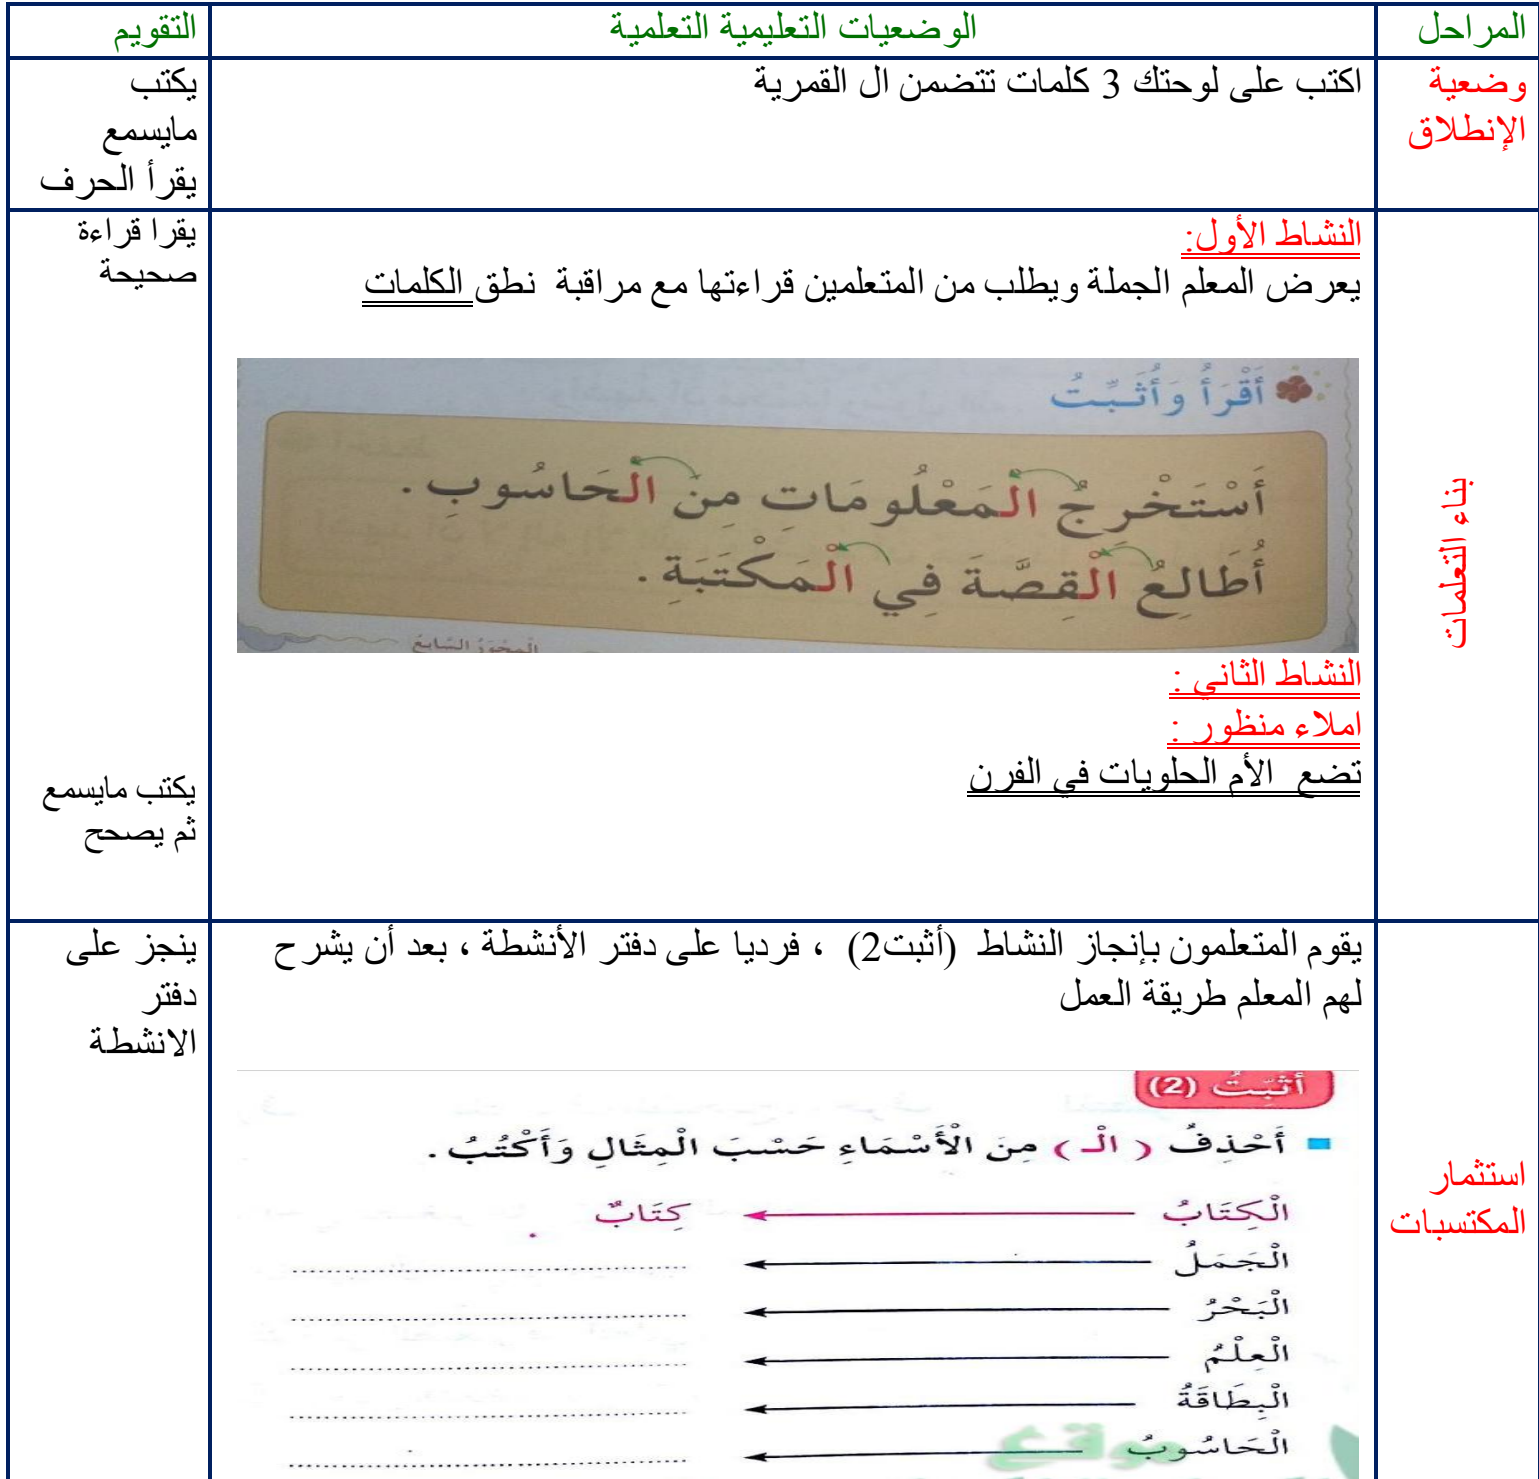 المراحل
الوضعيات التعليمية التعلمية
التقويم
وضعية
الإنطلاق
اكتب على لوحتك 3 كلمات تتضمن ال القمرية
يكتب
مايسمع
يقرأ الحرف
بناء التعلمات
النشاط الأول:
يعرض المعلم الجملة ويطلب من المتعلمين قراءتها مع مراقبة نطق الكلمات
أَقْرَأُ وَأُثَبِّتُ
أَسْتَخْرِجُ الْمَعْلُومَاتِ مِنَ الْحَاسُوبِ .
أُطَالِعُ الْقِصَّةَ فِي الْمَكْتَبَةِ .
الْمِحْوَرُ السَّابِعُ
النشاط الثاني :
املاء منظور :
تضع الأم الحلويات في الفرن
يقرا قراءة
صحيحة
يكتب مايسمع
ثم يصحح
استثمار
المكتسبات
يقوم المتعلمون بإنجاز النشاط (أثبت2) ، فرديا على دفتر الأنشطة ، بعد أن يشرح
لهم المعلم طريقة العمل
أُثَبِّتُ (2)
أَحْذِفُ ( الْـ ) مِنَ الْأَسْمَاءِ حَسْبَ الْمِثَالِ وَأَكْتُبُ .
الْكِتَابُ كِتَابٌ
الْجَمَلُ ........................
الْبَحْرُ ........................
الْعِلْمُ ........................
الْبِطَاقَةُ ........................
الْحَاسُوبُ ........................
موقع
ينجز على
دفتر
الانشطة